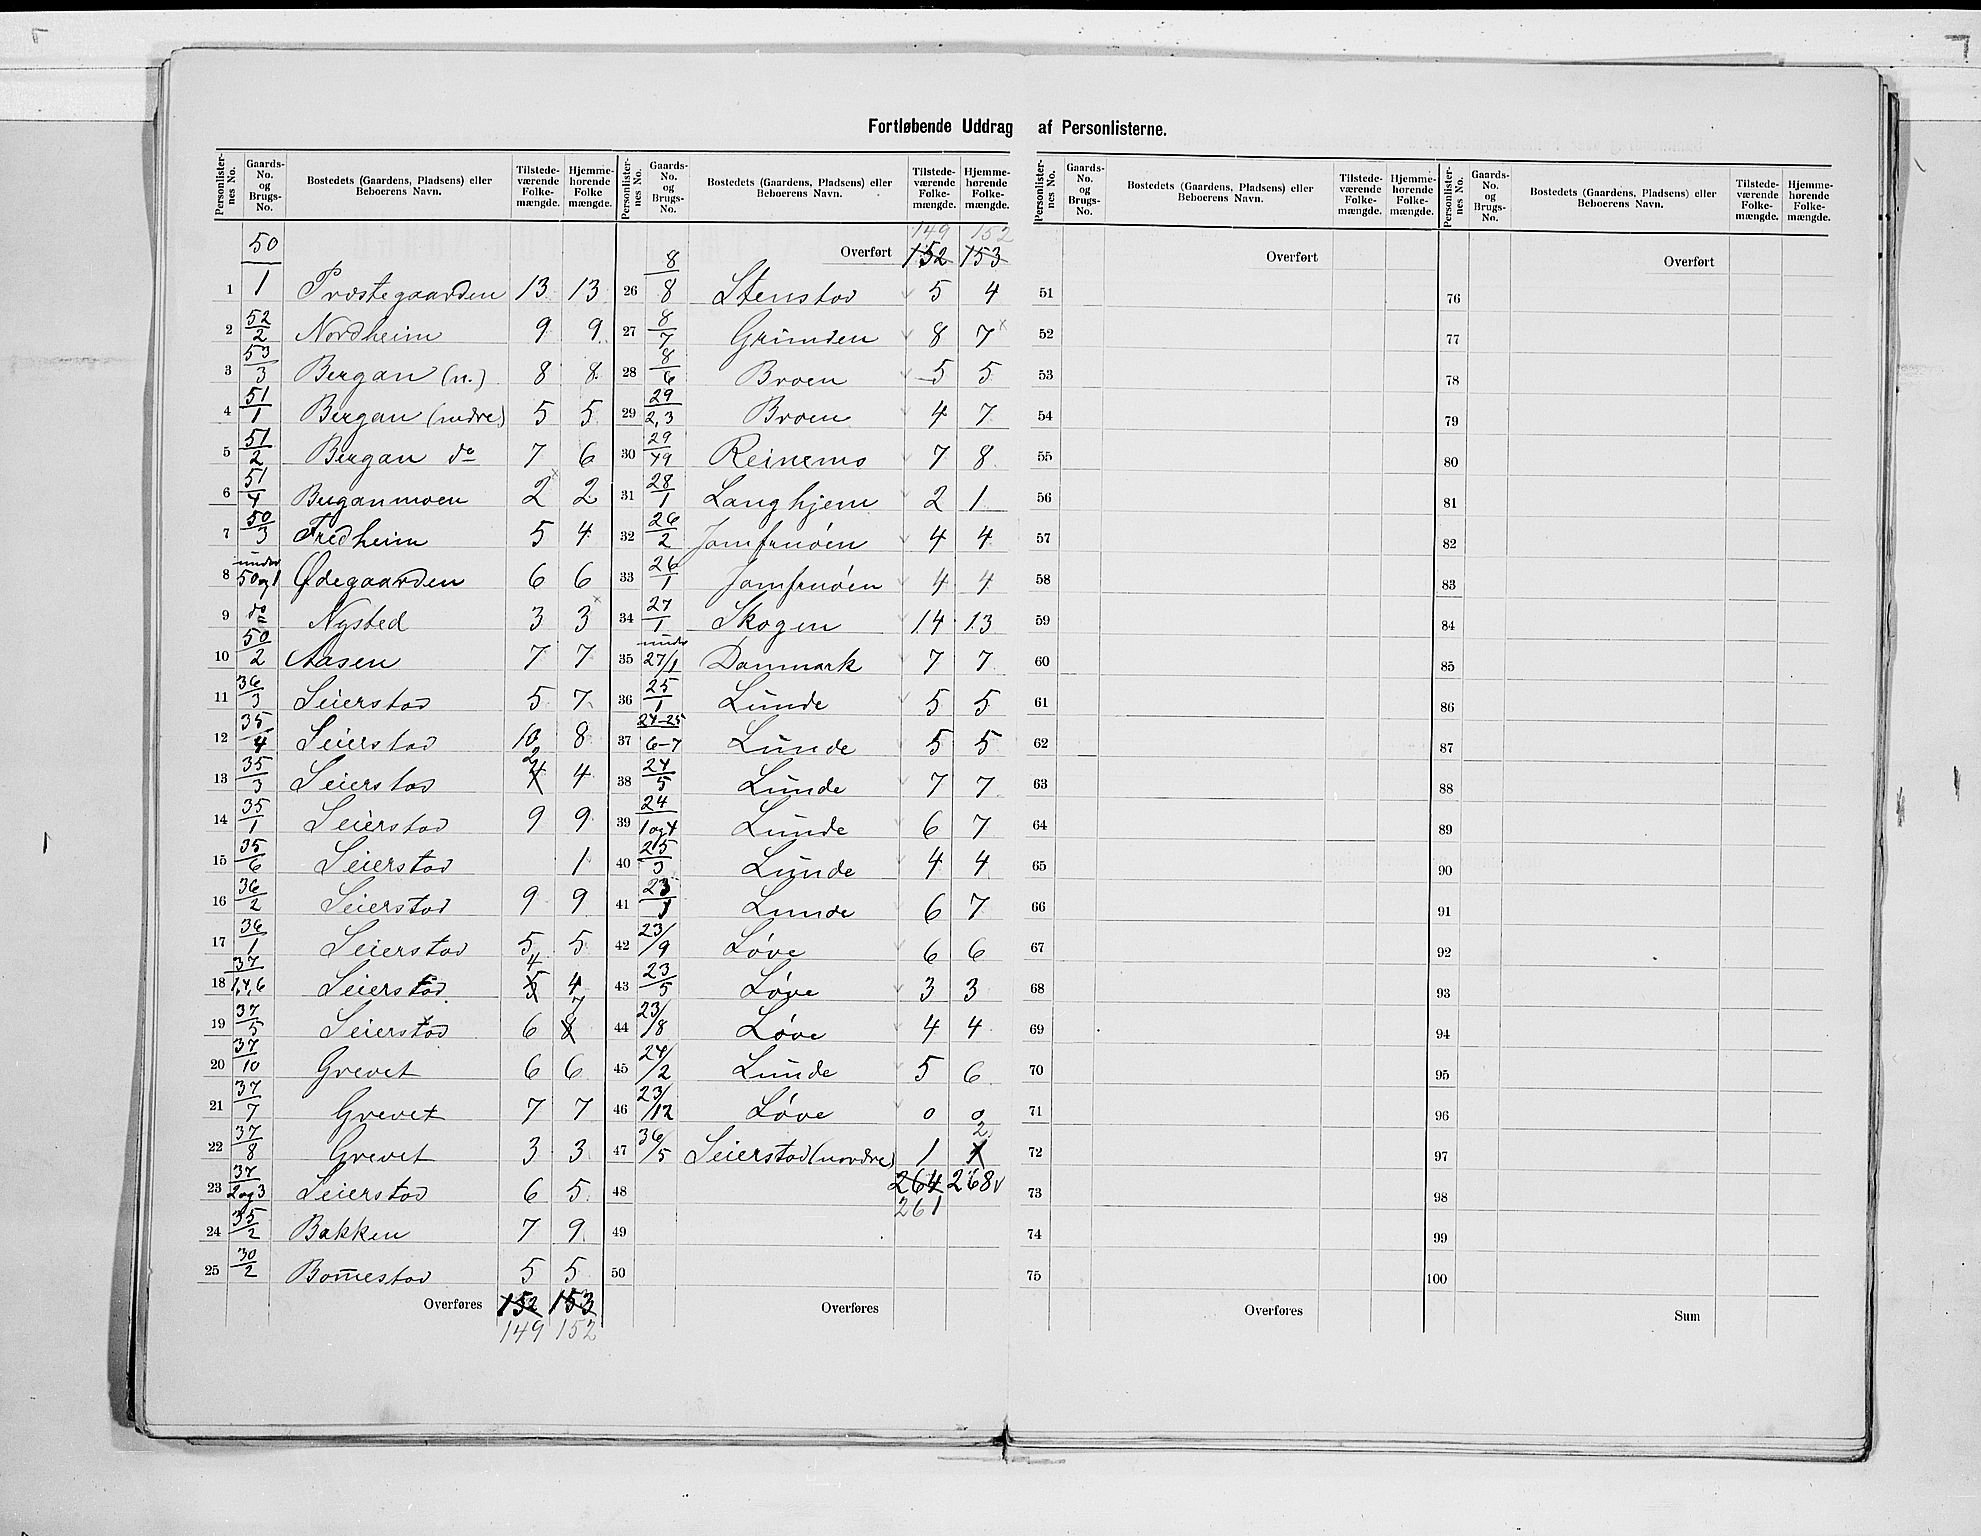 Fortløbende Uddrag af Personlisterne.
Personlisternes No. Gaards-No. og Brugs-No. Bostedets (Gaardens, Pladsens) eller Beboerens Navn. Tilstedeværende Folkemængde. Hjemmehørende Folkemængde.
1 50/1 Præstegaarden 13 13
2 52/2 Nordheim 9 9
3 53/3 Bergan (n.) 8 8
4 51/1 Bergan (nedre) 5 5
5 51/2 Bergan do 7 6
6 51/4 Berganmoen 2 2
7 50/3 Fredheim 5 4
8 under 50 og 1 Ødegaarden 6 6
9 do Nysted 3 3
10 50/2 Aasen 7 7
11 36/3 Seierstad 5 7
12 35/4 Seierstad 10 8
13 35/3 Seierstad 4 2 4
14 35/1 Seierstad 9 9
15 35/6 Seierstad 1
16 36/2 Seierstad 9 9
17 36/1 Seierstad 5 5
18 37/1,4,6 Seierstad 5 4 4
19 37/5 Seierstad 6 8 7
20 37/10 Grevet 6 6
21 37/7 Grevet 7 7
22 37/8 Grevet 3 3
23 37/2 og 3 Seierstad 6 5
24 35/2 Bakken 7 9
25 30/2 Bommestad 5 5
Overføres 152 153
149 152
Personlisternes No. Gaards-No. og Brugs-No. Bostedets (Gaardens, Pladsens) eller Beboerens Navn. Tilstedeværende Folkemængde. Hjemmehørende Folkemængde.
149 152
Overført 152 153
26 8/8 Stenstad 5 4
27 8/7 Grinden 8 7
28 8/6 Broen 5 5
29 29/2,3 Broen 4 7
30 29/49 Reinemo 7 8
31 28/1 Langhjem 2 1
32 26/2 Jomfruöen 4 4
33 26/1 Jomfruöen 4 4
34 27/1 Skogen 14 13
35 under 27/1 Danmark 7 7
36 25/1 Lunde 5 5
37 24-25/6-7 Lunde 5 5
38 24/5 Lunde 7 7
39 24/1 og 4 Lunde 6 7
40 25/3 Lunde 4 4
41 23/1 Lunde 6 7
42 23/9 Løve 6 6
43 23/5 Løve 3 3
44 23/8 Løve 4 4
45 24/2 Lunde 5 6
46 23/12 Løve 0 0
47 36/5 Seierstad (nordre) 1 1 2
48 264 268
261
49
50
Overføres
Personlisternes No. Gaards-No. og Brugs-No. Bostedets (Gaardens, Pladsens) eller Beboerens Navn. Tilstedeværende Folkemængde. Hjemmehørende Folkemængde.
Overført
51
52
53
54
55
56
57
58
59
60
61
62
63
64
65
66
67
68
69
70
71
72
73
74
75
Overføres
Personlisternes No. Gaards-No. og Brugs-No. Bostedets (Gaardens, Pladsens) eller Beboerens Navn. Tilstedeværende Folkemængde. Hjemmehørende Folkemængde.
Overført
76
77
78
79
80
81
82
83
84
85
86
87
88
89
90
91
92
93
94
95
96
97
98
99
100
Sum